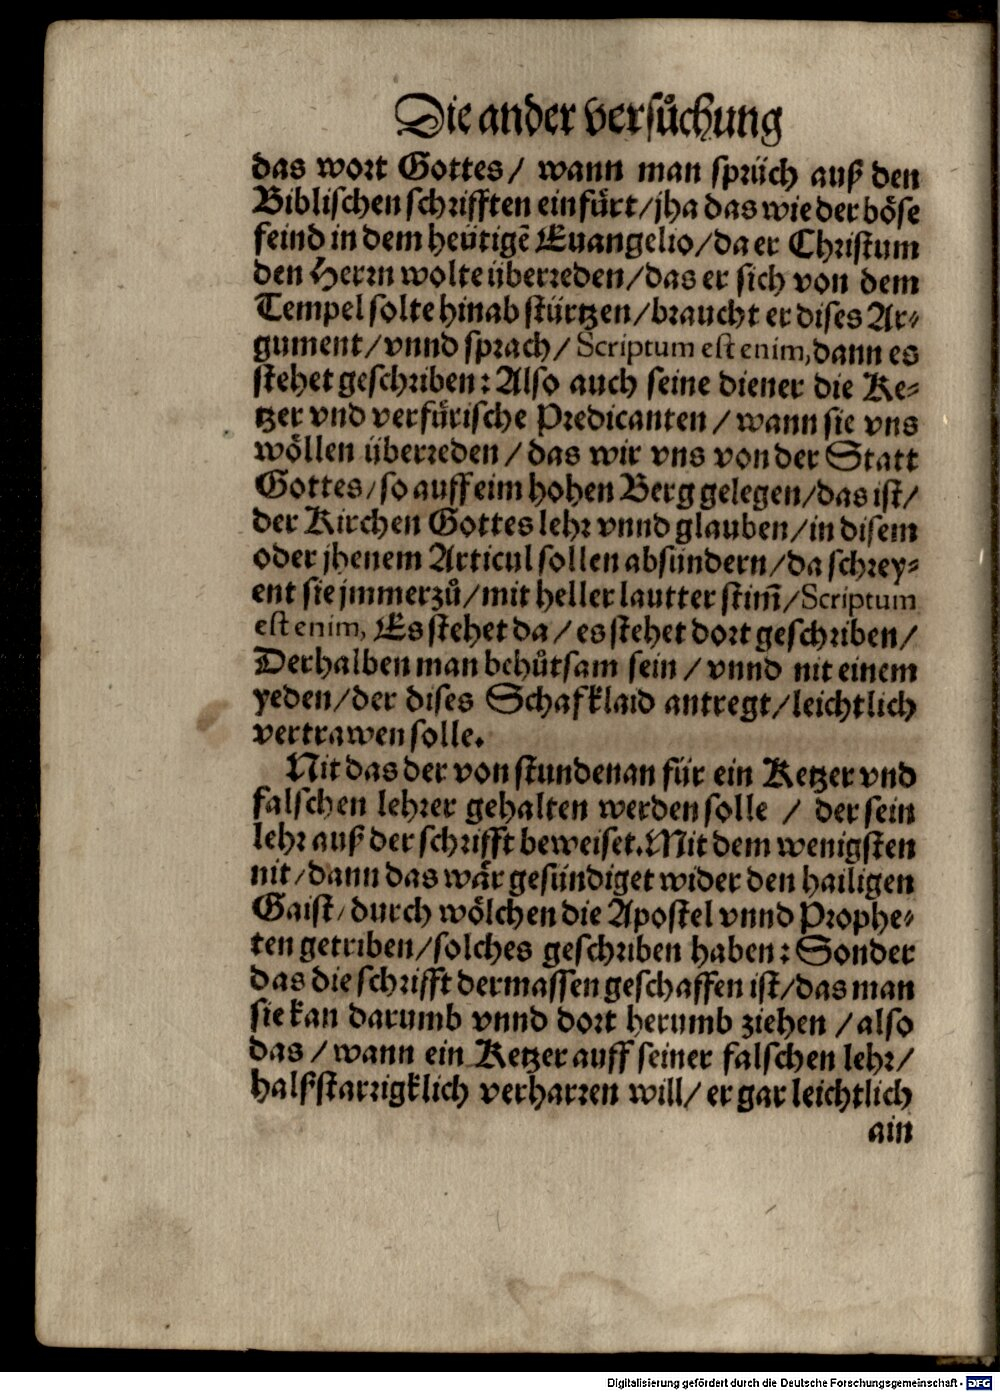 Die ander versůchung
das wort Gottes / wann man sprüch auß den
Biblischen schrifften einfůrt / jha das wie der böse
feind in dem heütigē Euangelio / da er Christum
den Herrn wolte überreden / das er sich von dem
Tempel solte hinab stürtzen / braucht er dises Ar⸗
gument / vnnd sprach / Scriptum est enim, dann es
stehet geschriben : Also auch seine diener die Ke⸗
tzer vnd verfůrische Predicanten / wann sie vns
wöllen überreden / das wir vns von der Statt
Gottes / so auff eim hohen Berg gelegen / das ist /
der Kirchen Gottes lehr vnnd glauben / in disem
oder jhenem Articul sollen absündern / da schrey⸗
ent sie jmmerzů / mit heller lautter stim̄ / Scriptum
est enim, Es stehet da / es stehet dort geschriben /
Derhalben man behůtsam sein / vnnd nit einem
yeden / der dises Schafklaid antregt / leichtlich
vertrawen solle.
Nit das der von stundenan für ein Ketzer vnd
falschen lehrer gehalten werden solle / der sein
lehr auß der schrifft beweiset. Mit dem wenigsten
nit / dann das wår gesündiget wider den hailigen
Gaist / durch wölchen die Apostel vnnd Prophe⸗
ten getriben / solches geschriben haben : Sonder
das die schrifft dermassen geschaffen ist / das man
sie kan darumb vnnd dort herumb ziehen / also
das / wann ein Ketzer auff seiner falschen lehr /
halßstarrigklich verharren will / er gar leichtlich
ain
Digitalisierung gefördert durch die Deutsche Forschungsgemeinschaft - DFG